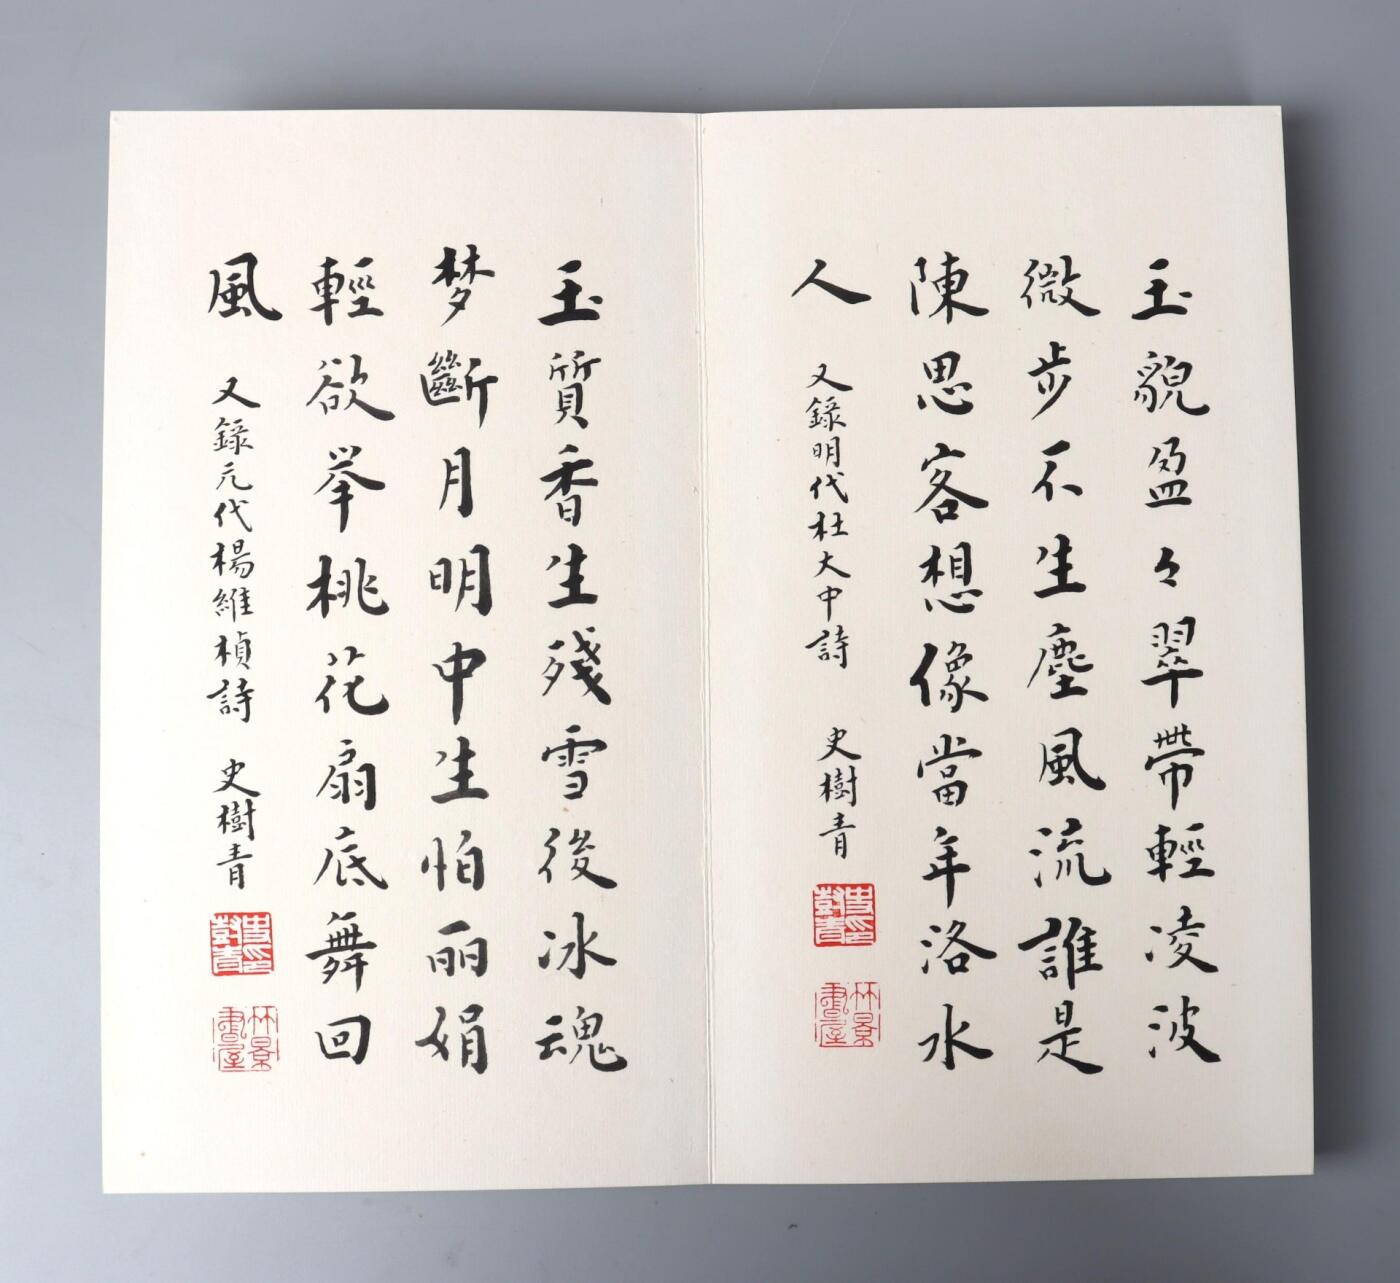 玉貌盈々翠帶輕凌波
微步不生塵風流誰是
陳思客想像當年洛水
人
又錄明代杜大中詩
史樹青
史樹青印
竹景書屋
玉質香生殘雪後冰魂
梦斷月明中生怕丽娟
輕欲举桃花扇底舞回
風
又錄元代楊維楨詩
史樹青
史樹青印
竹景書屋